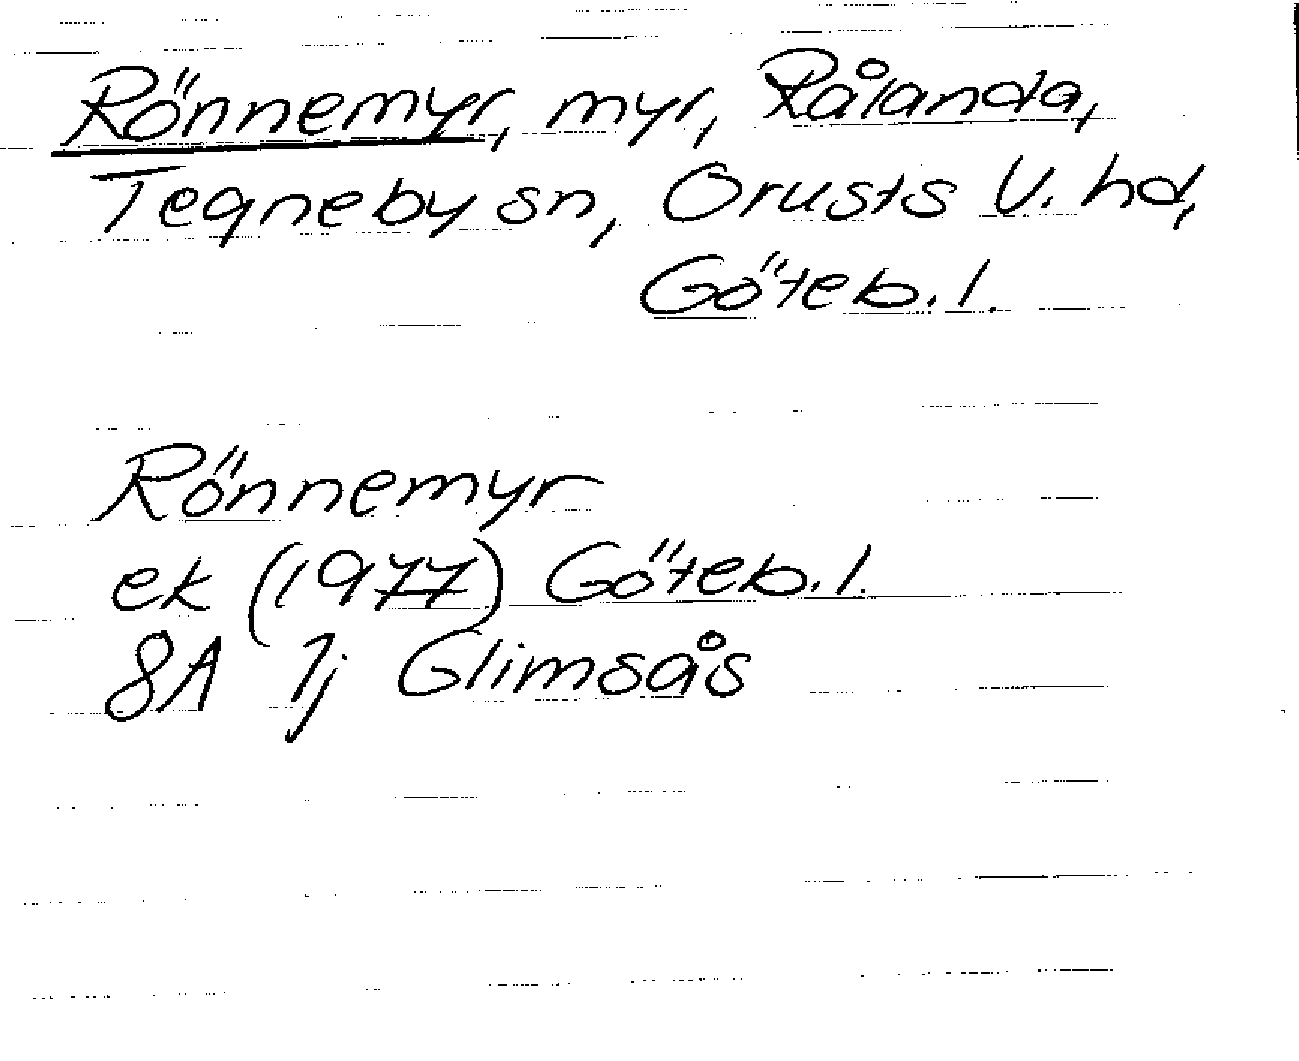 Rönnemyr, myr, Rålanda,
Tegneby sn, Orusts V. hd,
Göteb. l.
Rönnemyr
ek (1977) Göteb. l.
8A 1j Glimsås